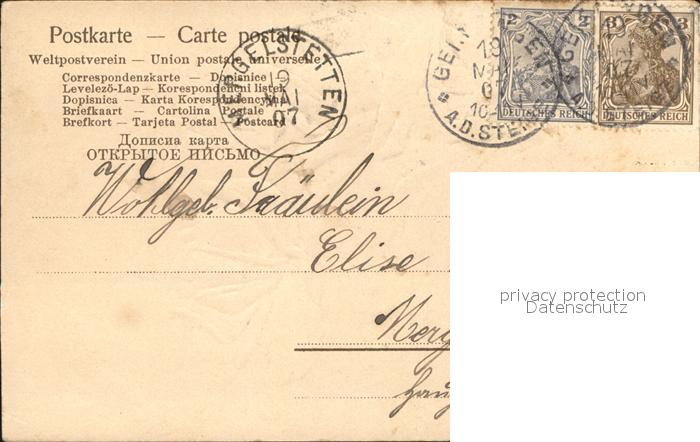 Postkarte — Carte postale
Weltpostverein — Union postale universelle
Correspondenzkarte — Dopisnice
Levelező-Lap — Korespondenční listek
Dopisnica — Karta Korespondencyjna
Briefkaart — Cartolina Postale
Brefkort — Tarjeta Postal — Postcard
Дописна карта
ОТКРЫТОЕ ПИСЬМО
MERGELSTETTEN
19
MAI
07
2 2
DEUTSCHES REICH
3 3
DEUTSCHES REICH
A.D. STEIG
19
MAI
07
Wohlgeb. Fräulein
Elise
Merg
privacy protection
Datenschutz